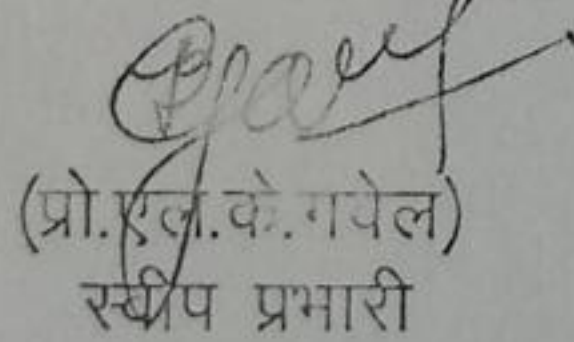 (प्रो.एल.के.गवेल)
स्वीप प्रभारी